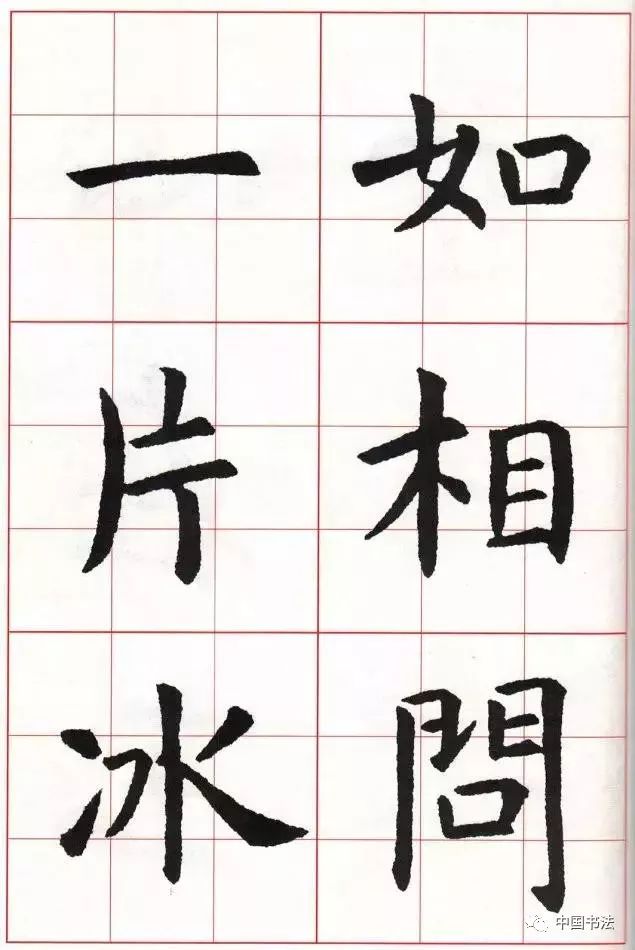 如相問
一片冰
中国书法